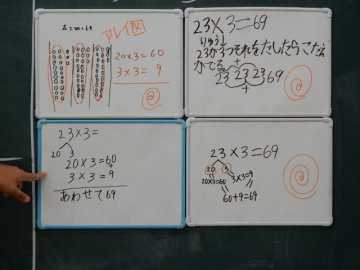 23×3=69
アレイ図
20×3=60
3×3=9
23×3=69
りゆう
23が3つそれをたしたらこたえ
がでる
23 23 23 69
+
+
23×3=
20 3
20×3=60
3×3=9
あわせて69
23×3=69
20 3
20×3=60
3×3=9
60+9=69